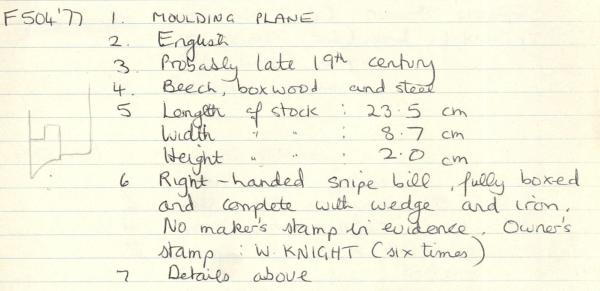 F504'77 1. MOULDING PLANE
2. English
3. Probably late 19th century
4. Beech, boxwood and steel
5 Length of stock : 23.5 cm
Width " " : 8.7 cm
Height " " : 2.0 cm
6 Right-handed snipe bill, fully boxed
and complete with wedge and iron.
No maker's stamp in evidence. Owner's
stamp : W. KNIGHT (six times)
7 Details above